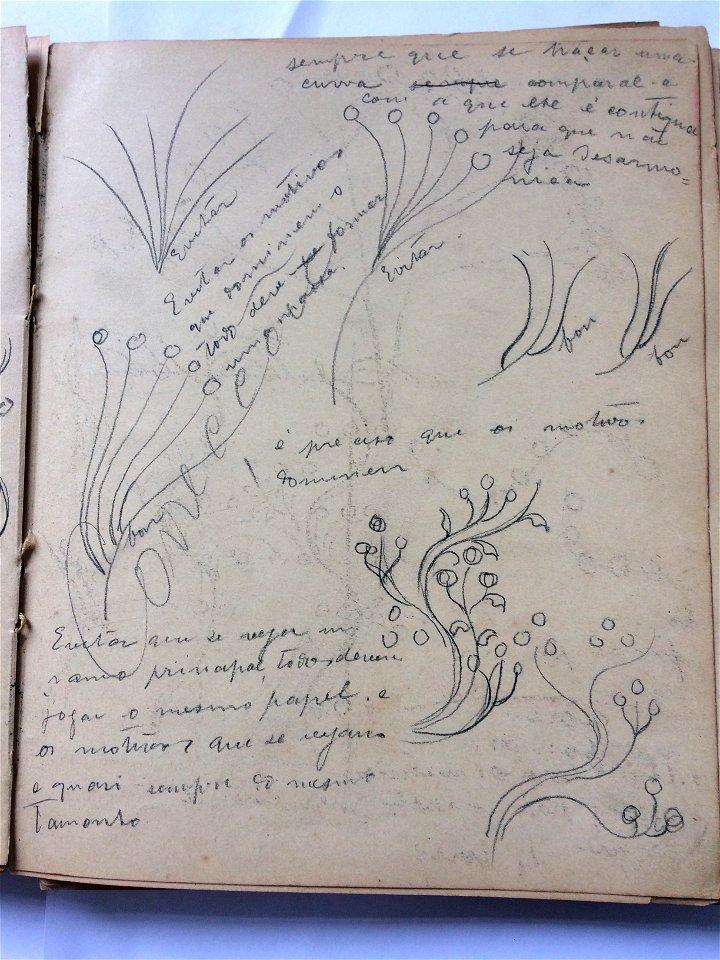 sempre que se traçar uma
curva sempre comparal-a
com a que lhe é contigua
para que não
seja desarmo=
nica
Evitar
Evitar os motivos
que dominem o
todo deve se formar
uma
Evitar.
bon
bon
é preciso que os motivos
dominem
bon
Evitar que se veja um
ramo principal, todos devem
jogar o mesmo papel. e
os motivos que se vejam
e quasi sempre do mesmo
tamanho